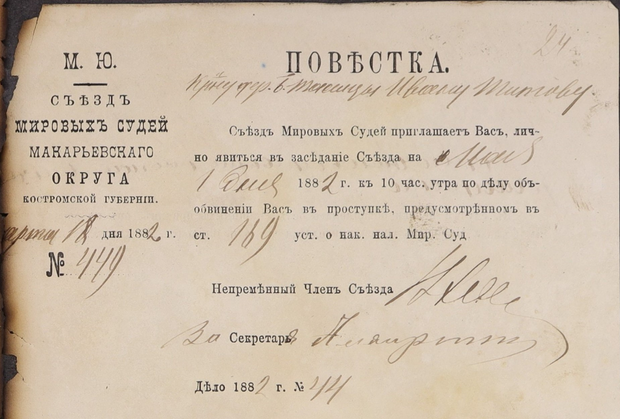 24
М. Ю.
СЪѢЗДЪ
МИРОВЫХЪ СУДЕЙ
МАКАРЬЕВСКАГО
ОКРУГА
КОСТРОМСКОЙ ГУБЕРНІИ.
арта 18 дня 1882 г.
№ 449
ПОВѢСТКА.
дер. Ивану Титову.
Съѣздъ Мировыхъ Судей приглашаетъ Васъ, лич-
но явиться въ засѣданіе Съѣзда на Мая
1 дня 1882 г. къ 10 час. утра по дѣлу объ-
обвиненіи Васъ въ проступкѣ, предусмотрѣнномъ въ
ст. 169 уст. о нак. нал. Мир. Суд
Непремѣнный Членъ Съѣзда
За Секретаря
Дѣло 1882 г. № 44